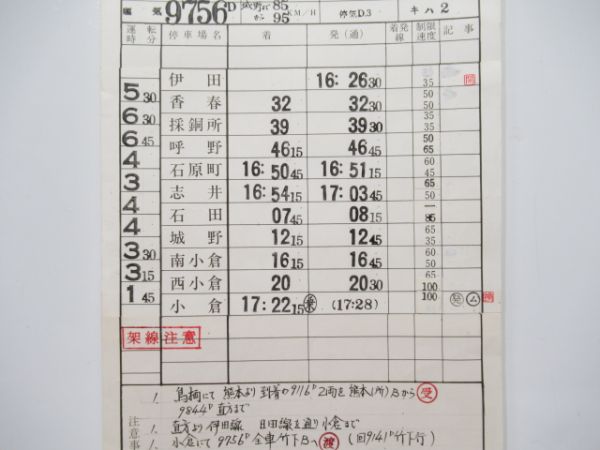 9756D 城野まで 85 KM/H 停気D.3 キハ 2
から 95
運転時分 停車場名 着 発(通) 着発線 制限速度 記事
伊田 16:26 30 35
5 30 香春 32 32 30 50
6 30 採銅所 39 39 30 35
6 45 呼野 46 15 46 45
4 石原町 16:50 45 16:51 15
3 志井 16:54 15 17:03 45
4 石田 07 45 08 15
4 城野 12 15 12 45
3 30 南小倉 16 15 16 45
3 15 西小倉 20 20 30 100
1 45 小倉 17:22 15 (17:28) 100
架線注意
注意事
1. 鳥栖にて 熊本より到着の9116D 2両を 熊本(所)Bから 受
9844D 直方まで
1. 直方より 伊田線 日田線を通り 小倉まで
1. 小倉にて 9756D 全車竹下Bへ 渡 (回9141D竹下行)